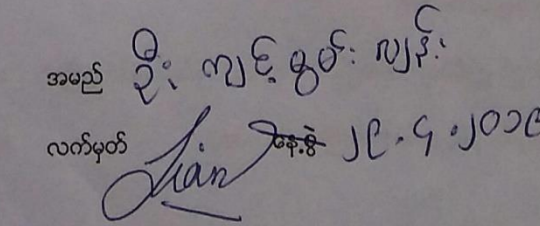 အမည် ဦး ကျင့် စွမ်း လျန်း
လက်မှတ် Lian နေ့စွဲ ၂၉.၄.၂၀၁၉